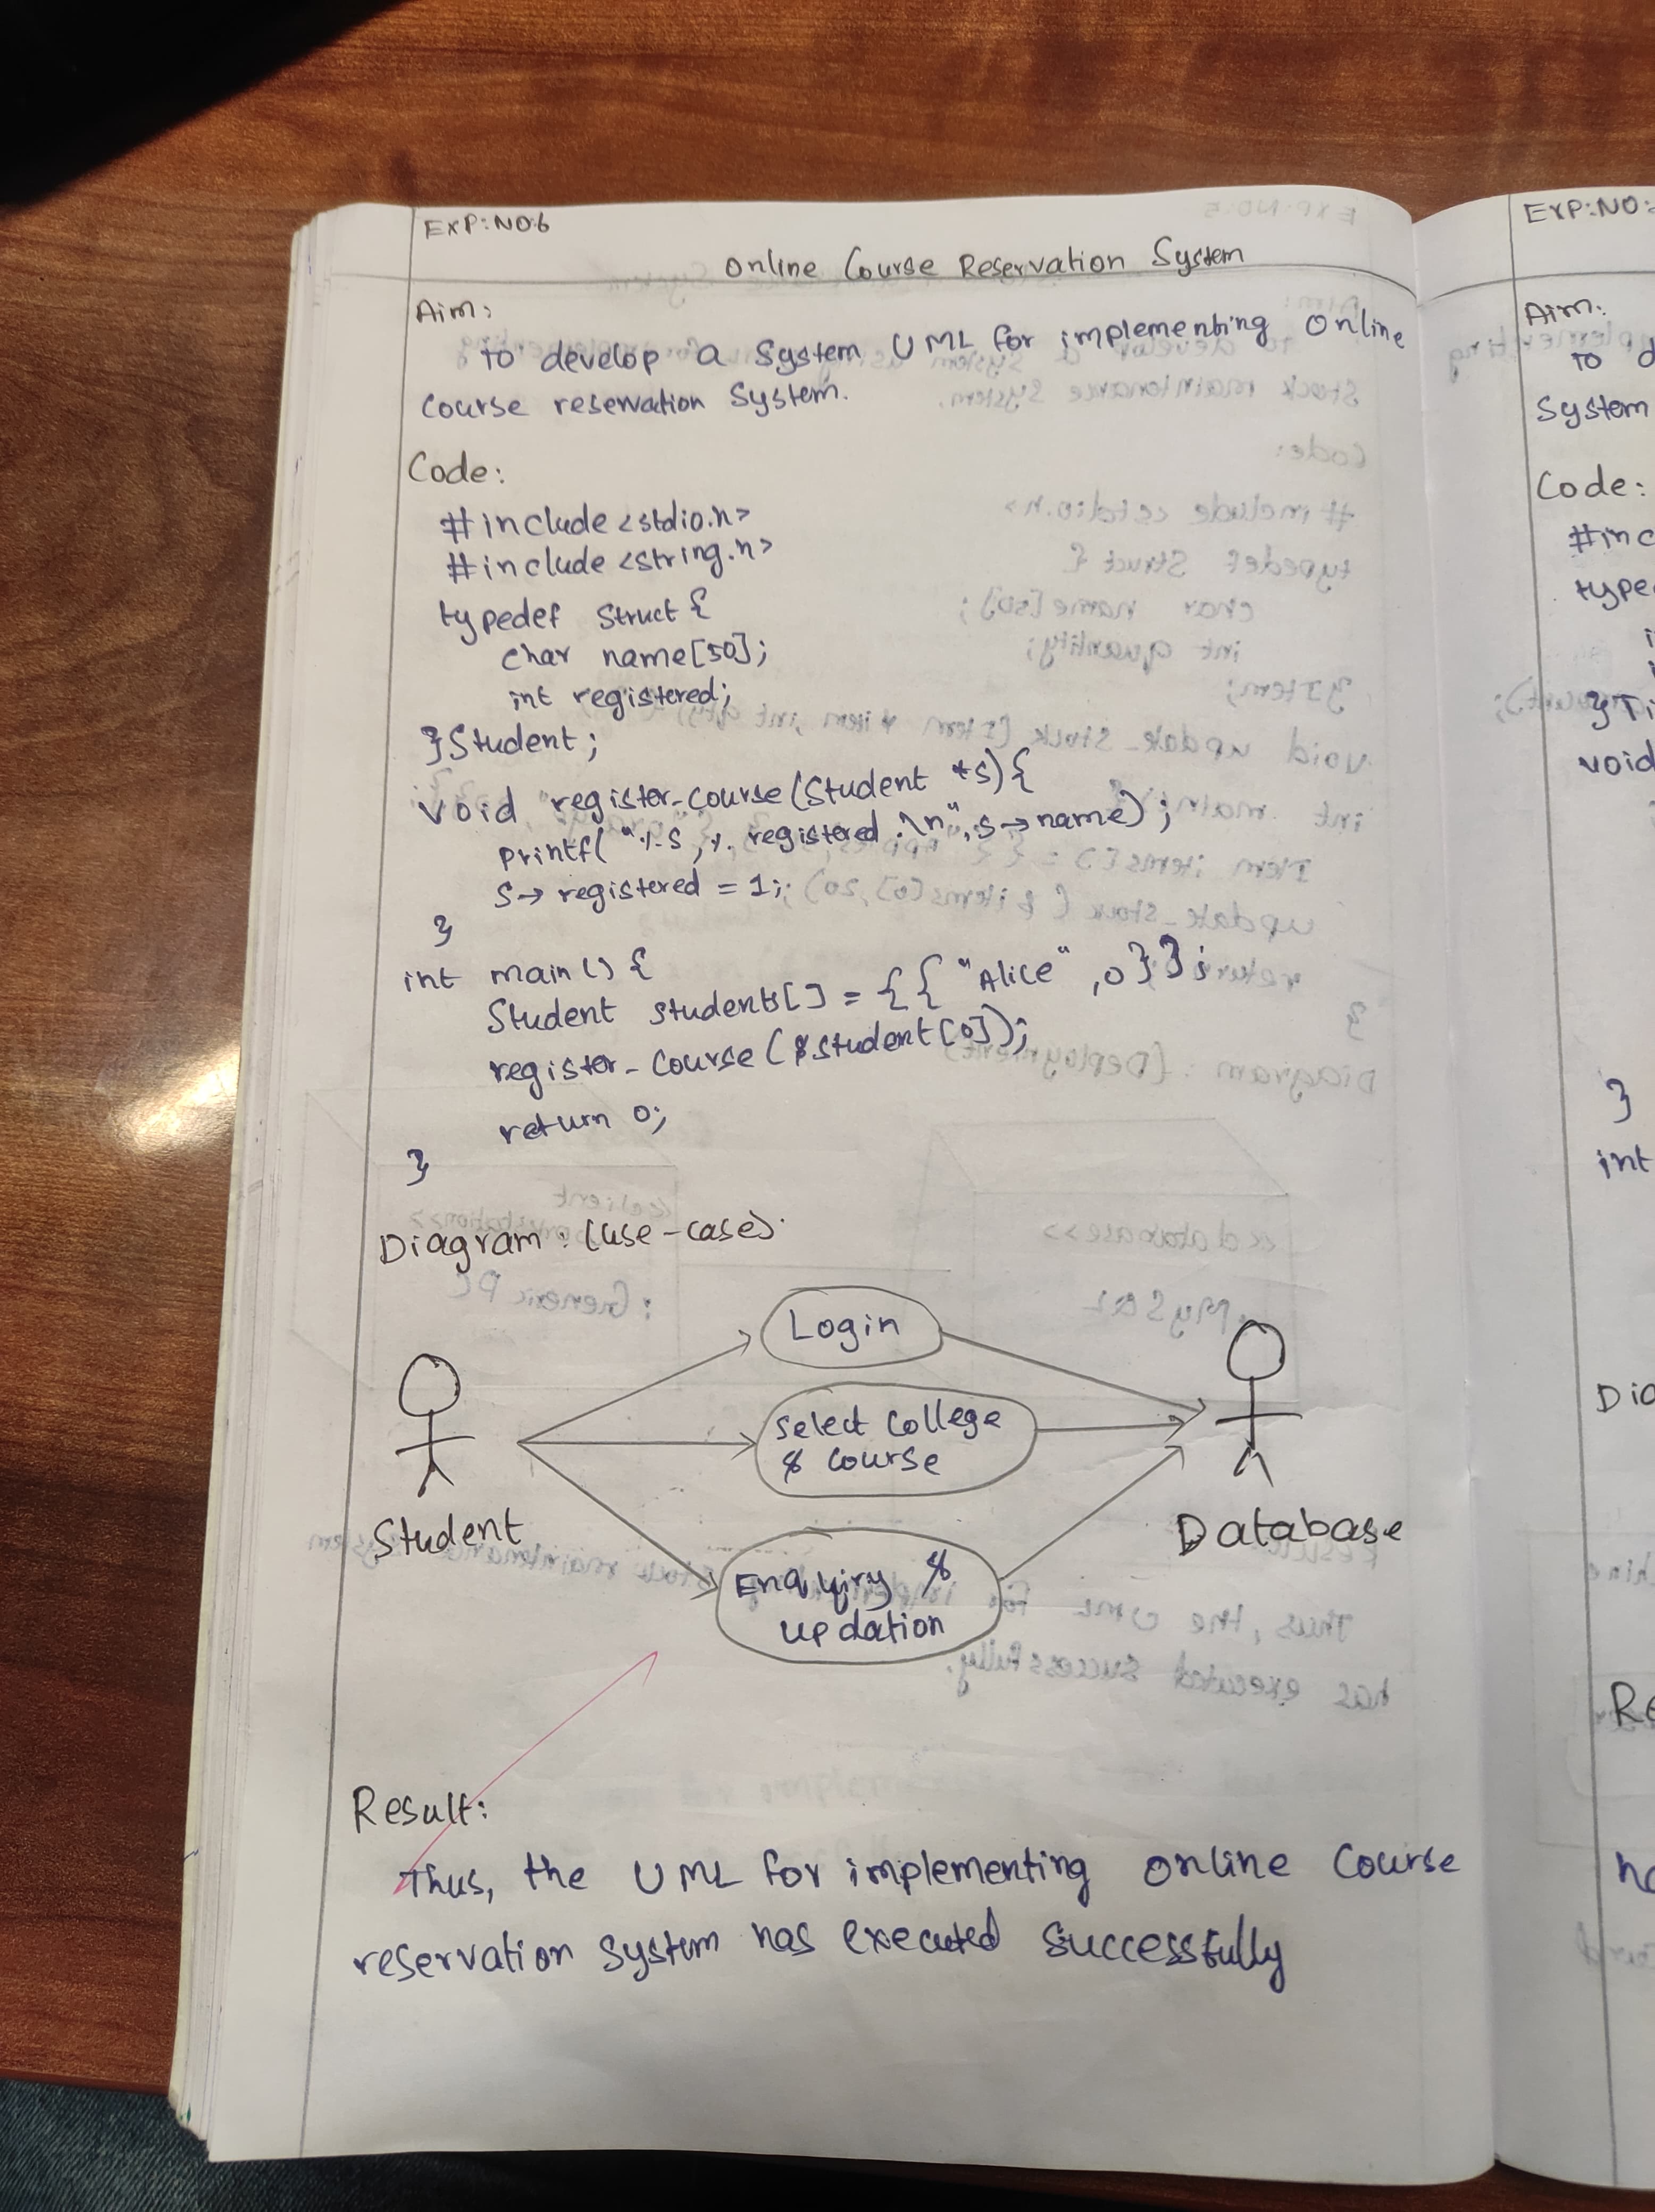 EXP:NO:6
Online Course Reservation System
Aim:
To develop a System UML for implementing Online
Course reservation System.
Code:
#include <stdio.h>
#include <string.h>
typedef struct {
char name[50];
int registered;
}Student;
void register_course(Student *s){
printf("%s, %. registered.\n", s→name);
s→registered = 1;
}
int main() {
Student students[] = {{ "Alice", 0}};
register_course(&student[0]);
return 0;
}
Diagram: (use-case):
Login
Select College
& course
Student
Database
Enquiry &
updation
Result:
Thus, the UML for implementing online Course
reservation system has executed successfully
EXP:NO:
Aim:
To d
System
Code:
#inc
type
}Ti
void
}
int
Dia
Re
ha